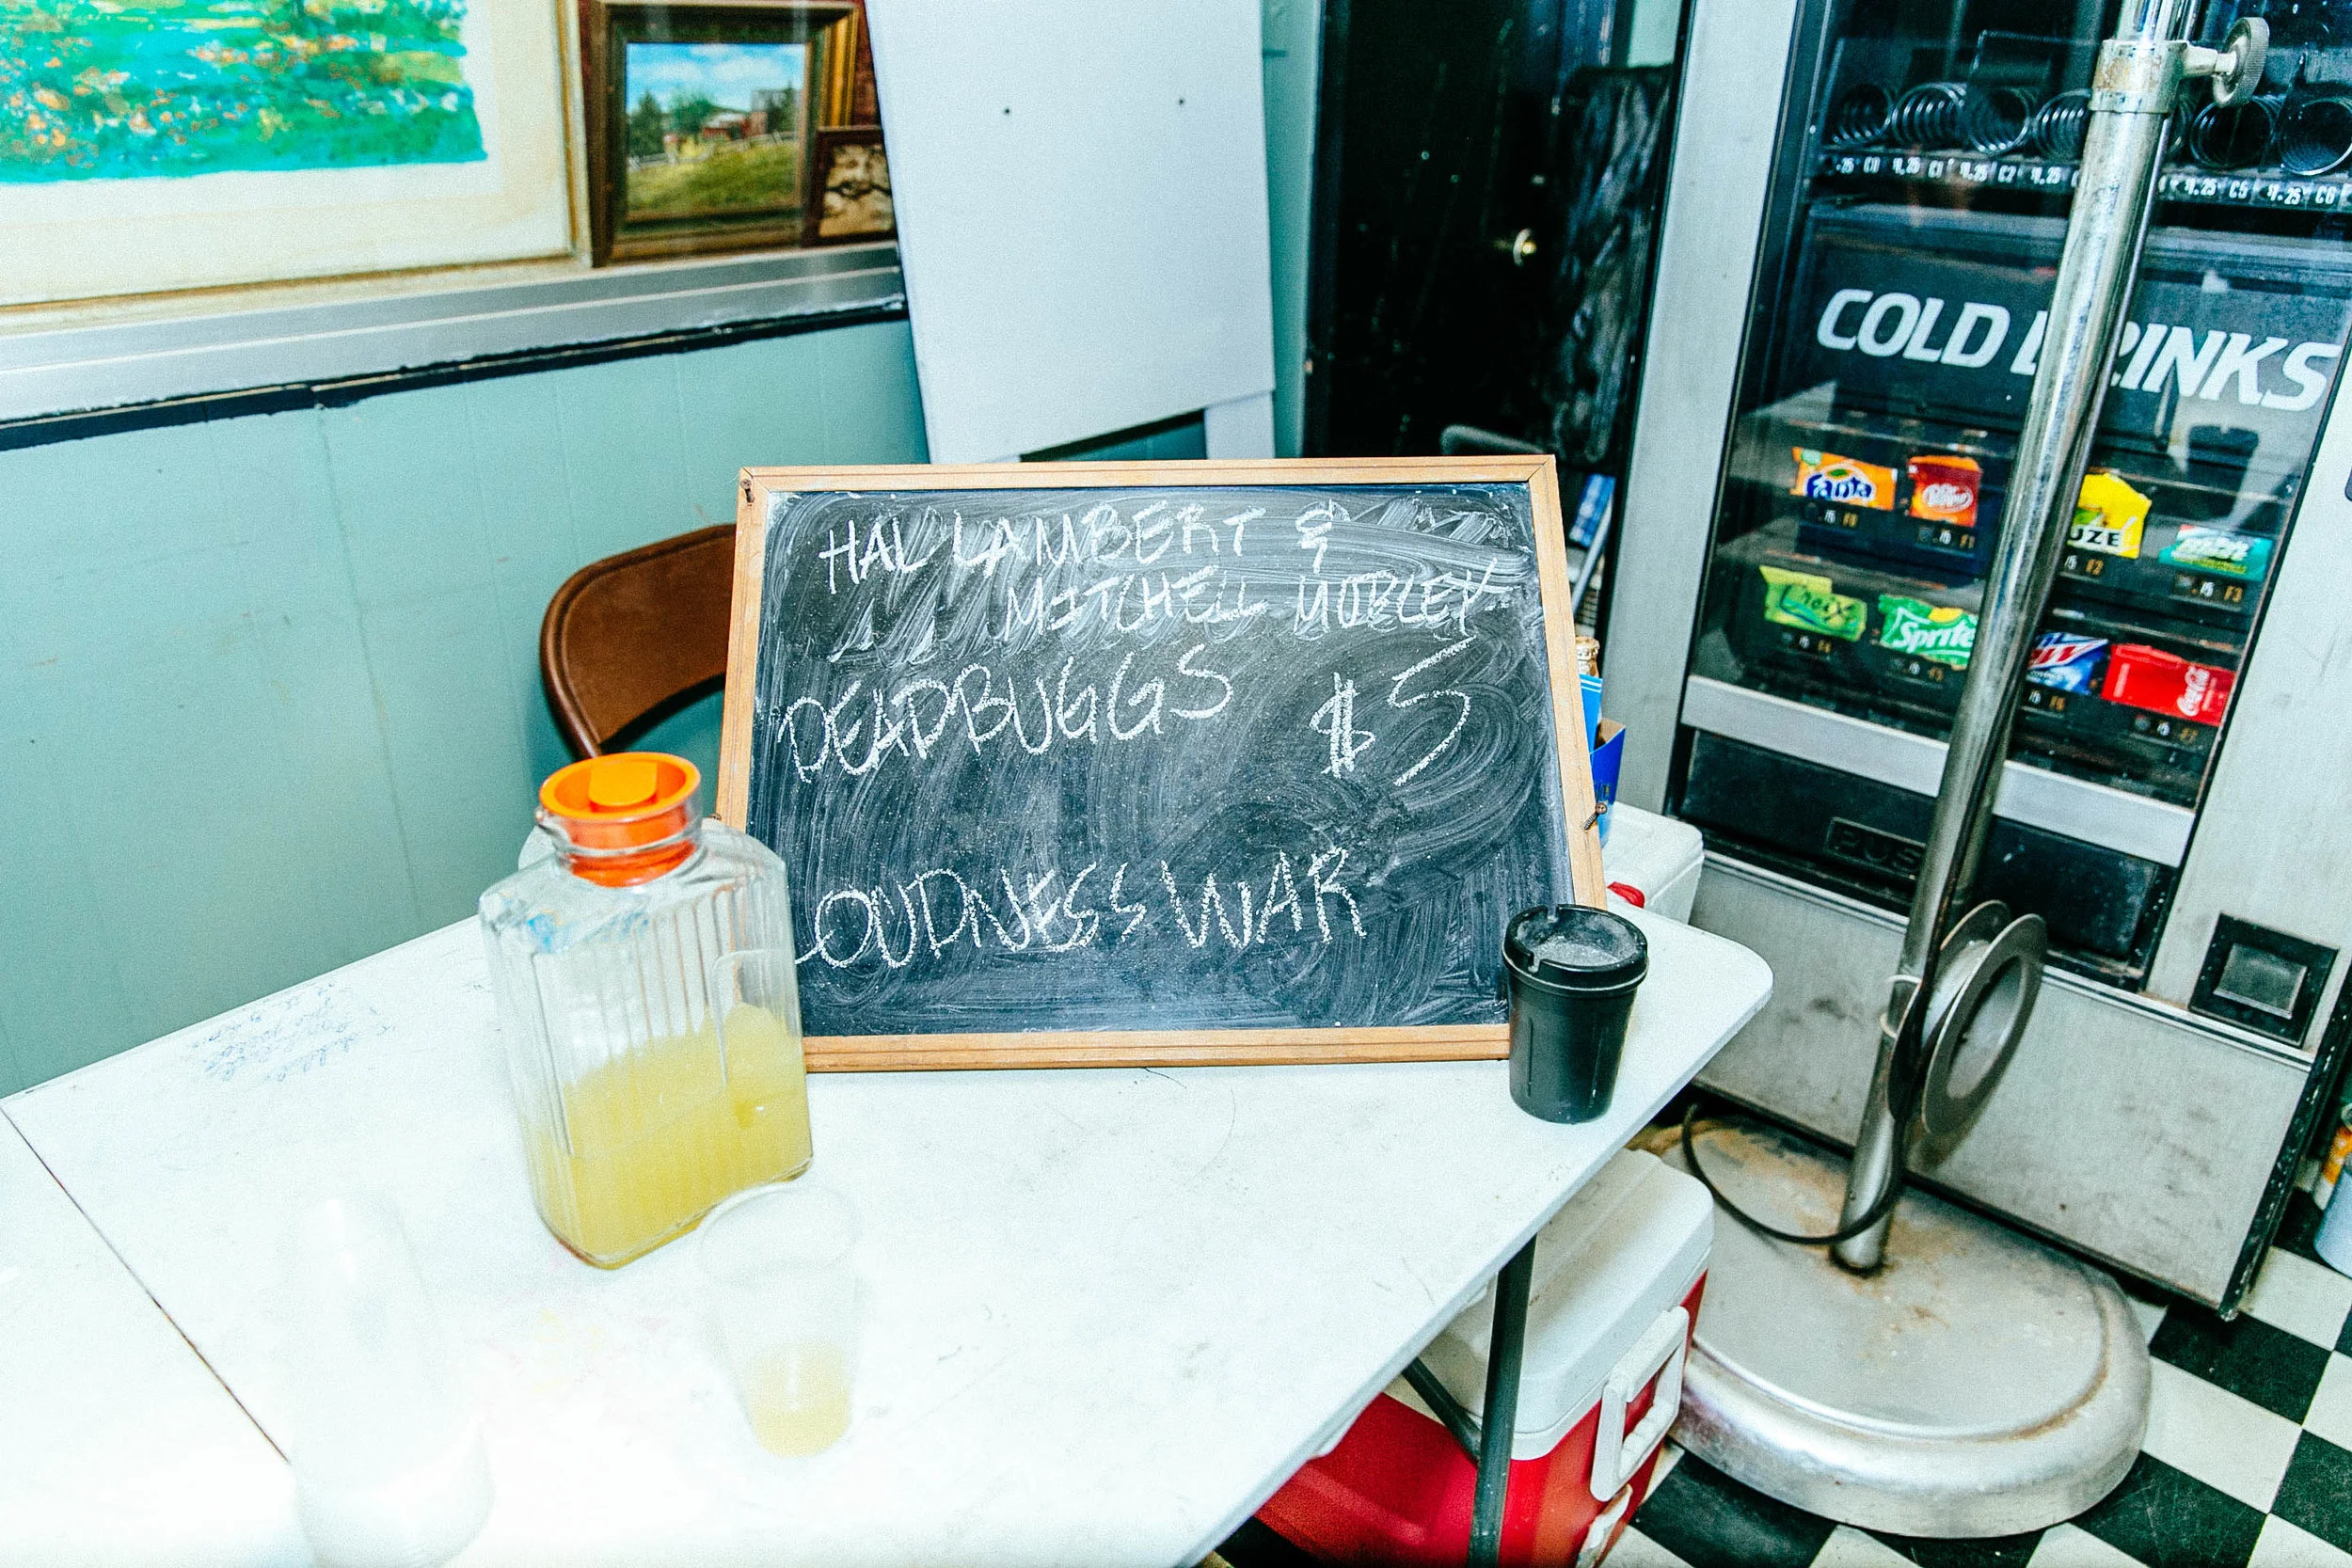 HAL LAMBERT &
MITCHELL MOBLEY
DEADBUGGS $5
LOUDNESS WAR
COLD DRINKS
Fanta
Dr Pepper
UZE
Sprite
Coca-Cola
PUS